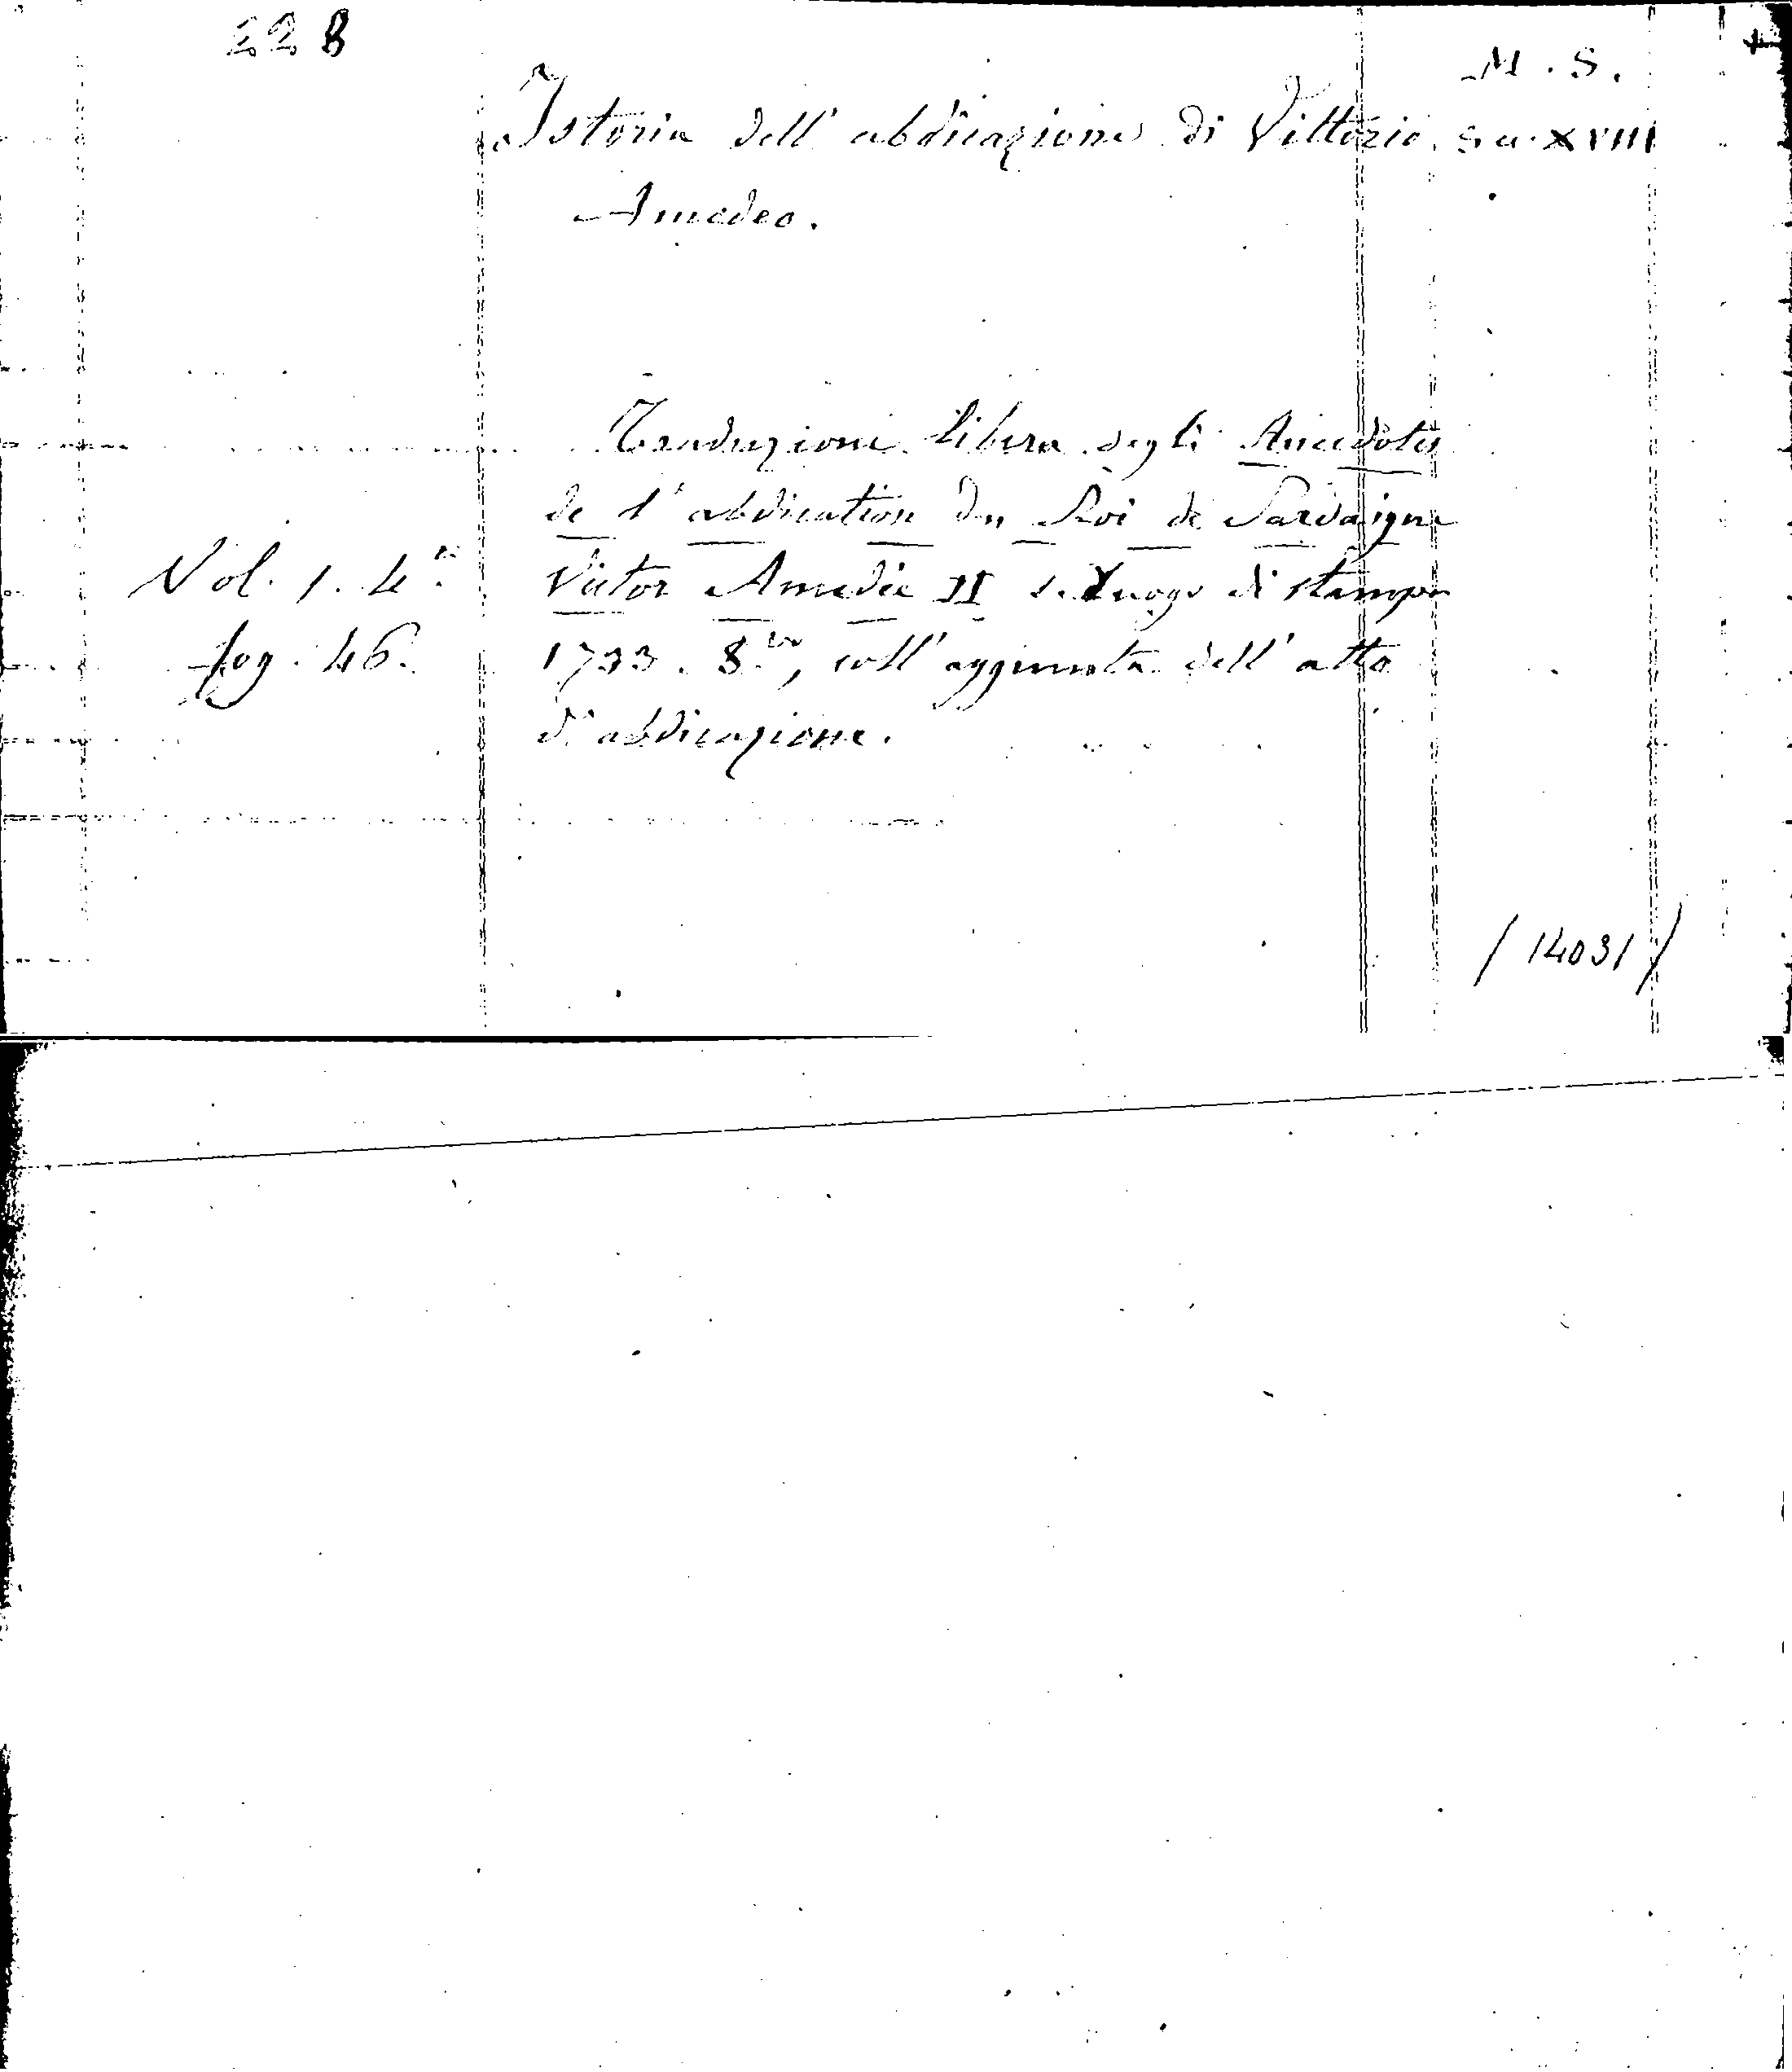 228
M. S.
Istoria dell' abdicazione di Vittorio Sec. XVIII
Amedeo.
Traduzione libera degli Anecdotes
de l' abdication du Roi de Sardaigne
Vol. 1. 4.to
Victor Amedée II s. luogo di stampa
fog. 46.
1733. 8.vo, coll' aggiunta dell' atto
d' abdicazione.
/ 14031 /